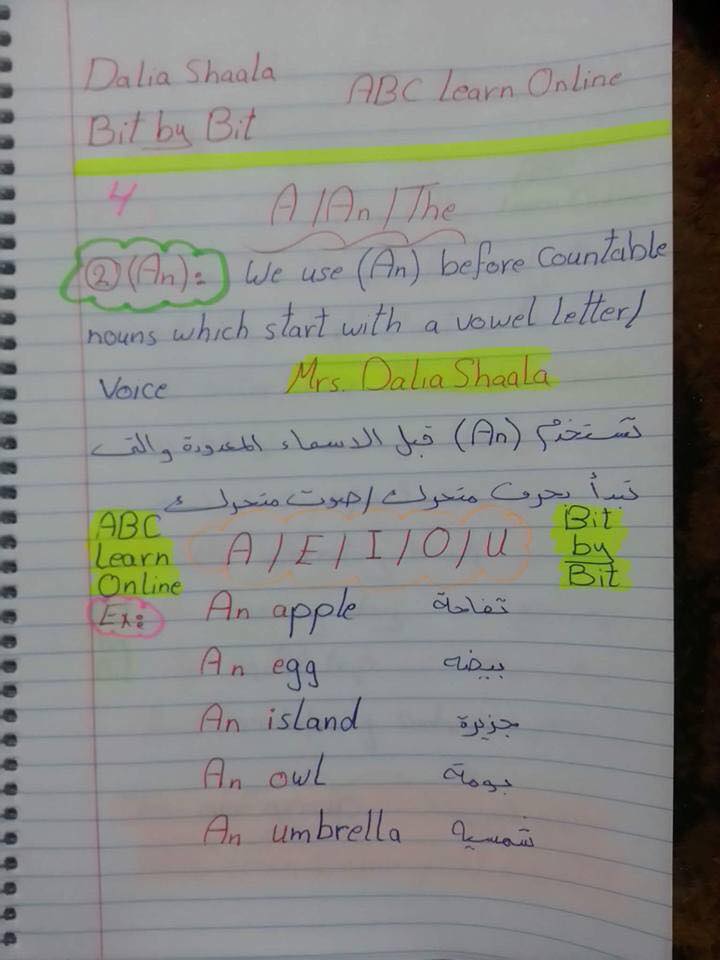 Dalia Shaala
ABC Learn Online
Bit by Bit
4
A/An/The
② (An): We use (An) before Countable
nouns which start with a vowel letter/
Voice
Mrs. Dalia Shaala
تستخدم (An) قبل الاسماء المعدودة والتى
تبدأ بحرف متحرك/صوت متحرك
ABC
Learn
Online
A/E/I/O/U
Bit
by
Bit
Ex:
An apple تفاحة
An egg بيضه
An island جزيرة
An owl بومة
An umbrella شمسيه